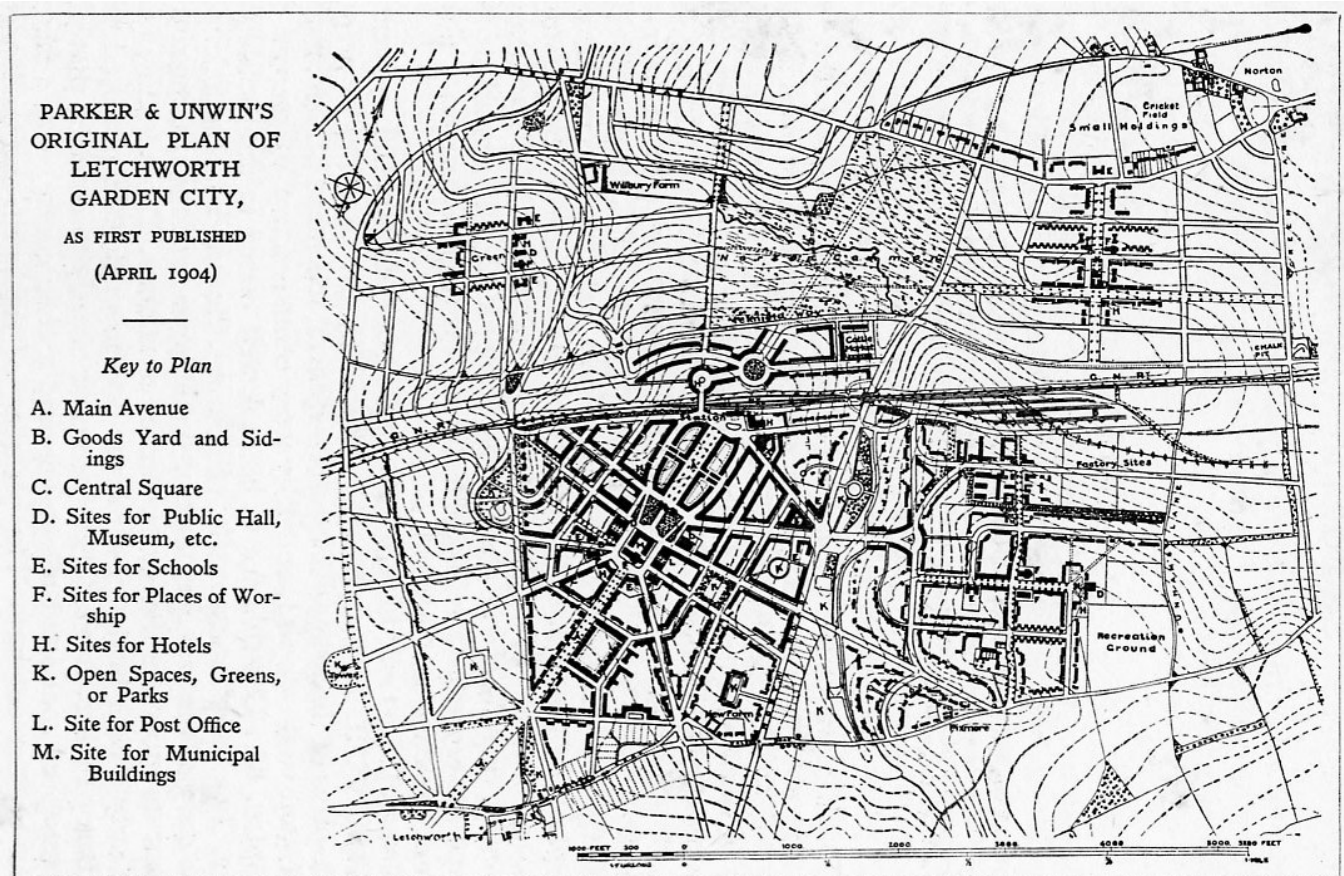 PARKER & UNWIN'S
ORIGINAL PLAN OF
LETCHWORTH
GARDEN CITY,
AS FIRST PUBLISHED
(APRIL 1904)
Key to Plan
A. Main Avenue
B. Goods Yard and Sid-
ings
C. Central Square
D. Sites for Public Hall,
Museum, etc.
E. Sites for Schools
F. Sites for Places of Wor-
ship
H. Sites for Hotels
K. Open Spaces, Greens,
or Parks
L. Site for Post Office
M. Site for Municipal
Buildings
Norton
Cricket
Field
Small Holdings
E
Wilbury Farm
E
H
Green
D
E
Norton Common
Way
Cattle
Market
H
CHALK
PIT
G.N.RY
G.N.RY
Station
H
Factory Sites
K
K
F
F
D
H
Recreation
Ground
K
K
Pixmore
Letchworth
1000 FEET 500 0 1000 2000 3000 5000 5280 FEET
1 MILE